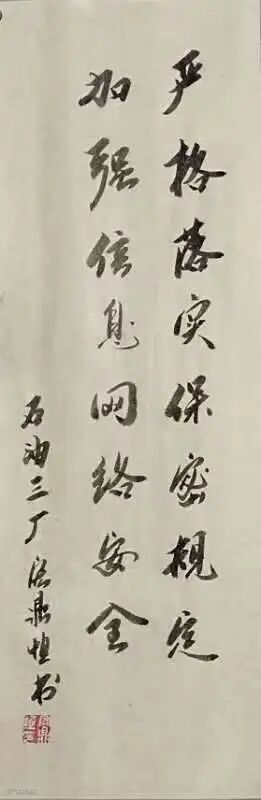 严格落实保密规定
加强信息网络安全
石油三厂 鼎恒书